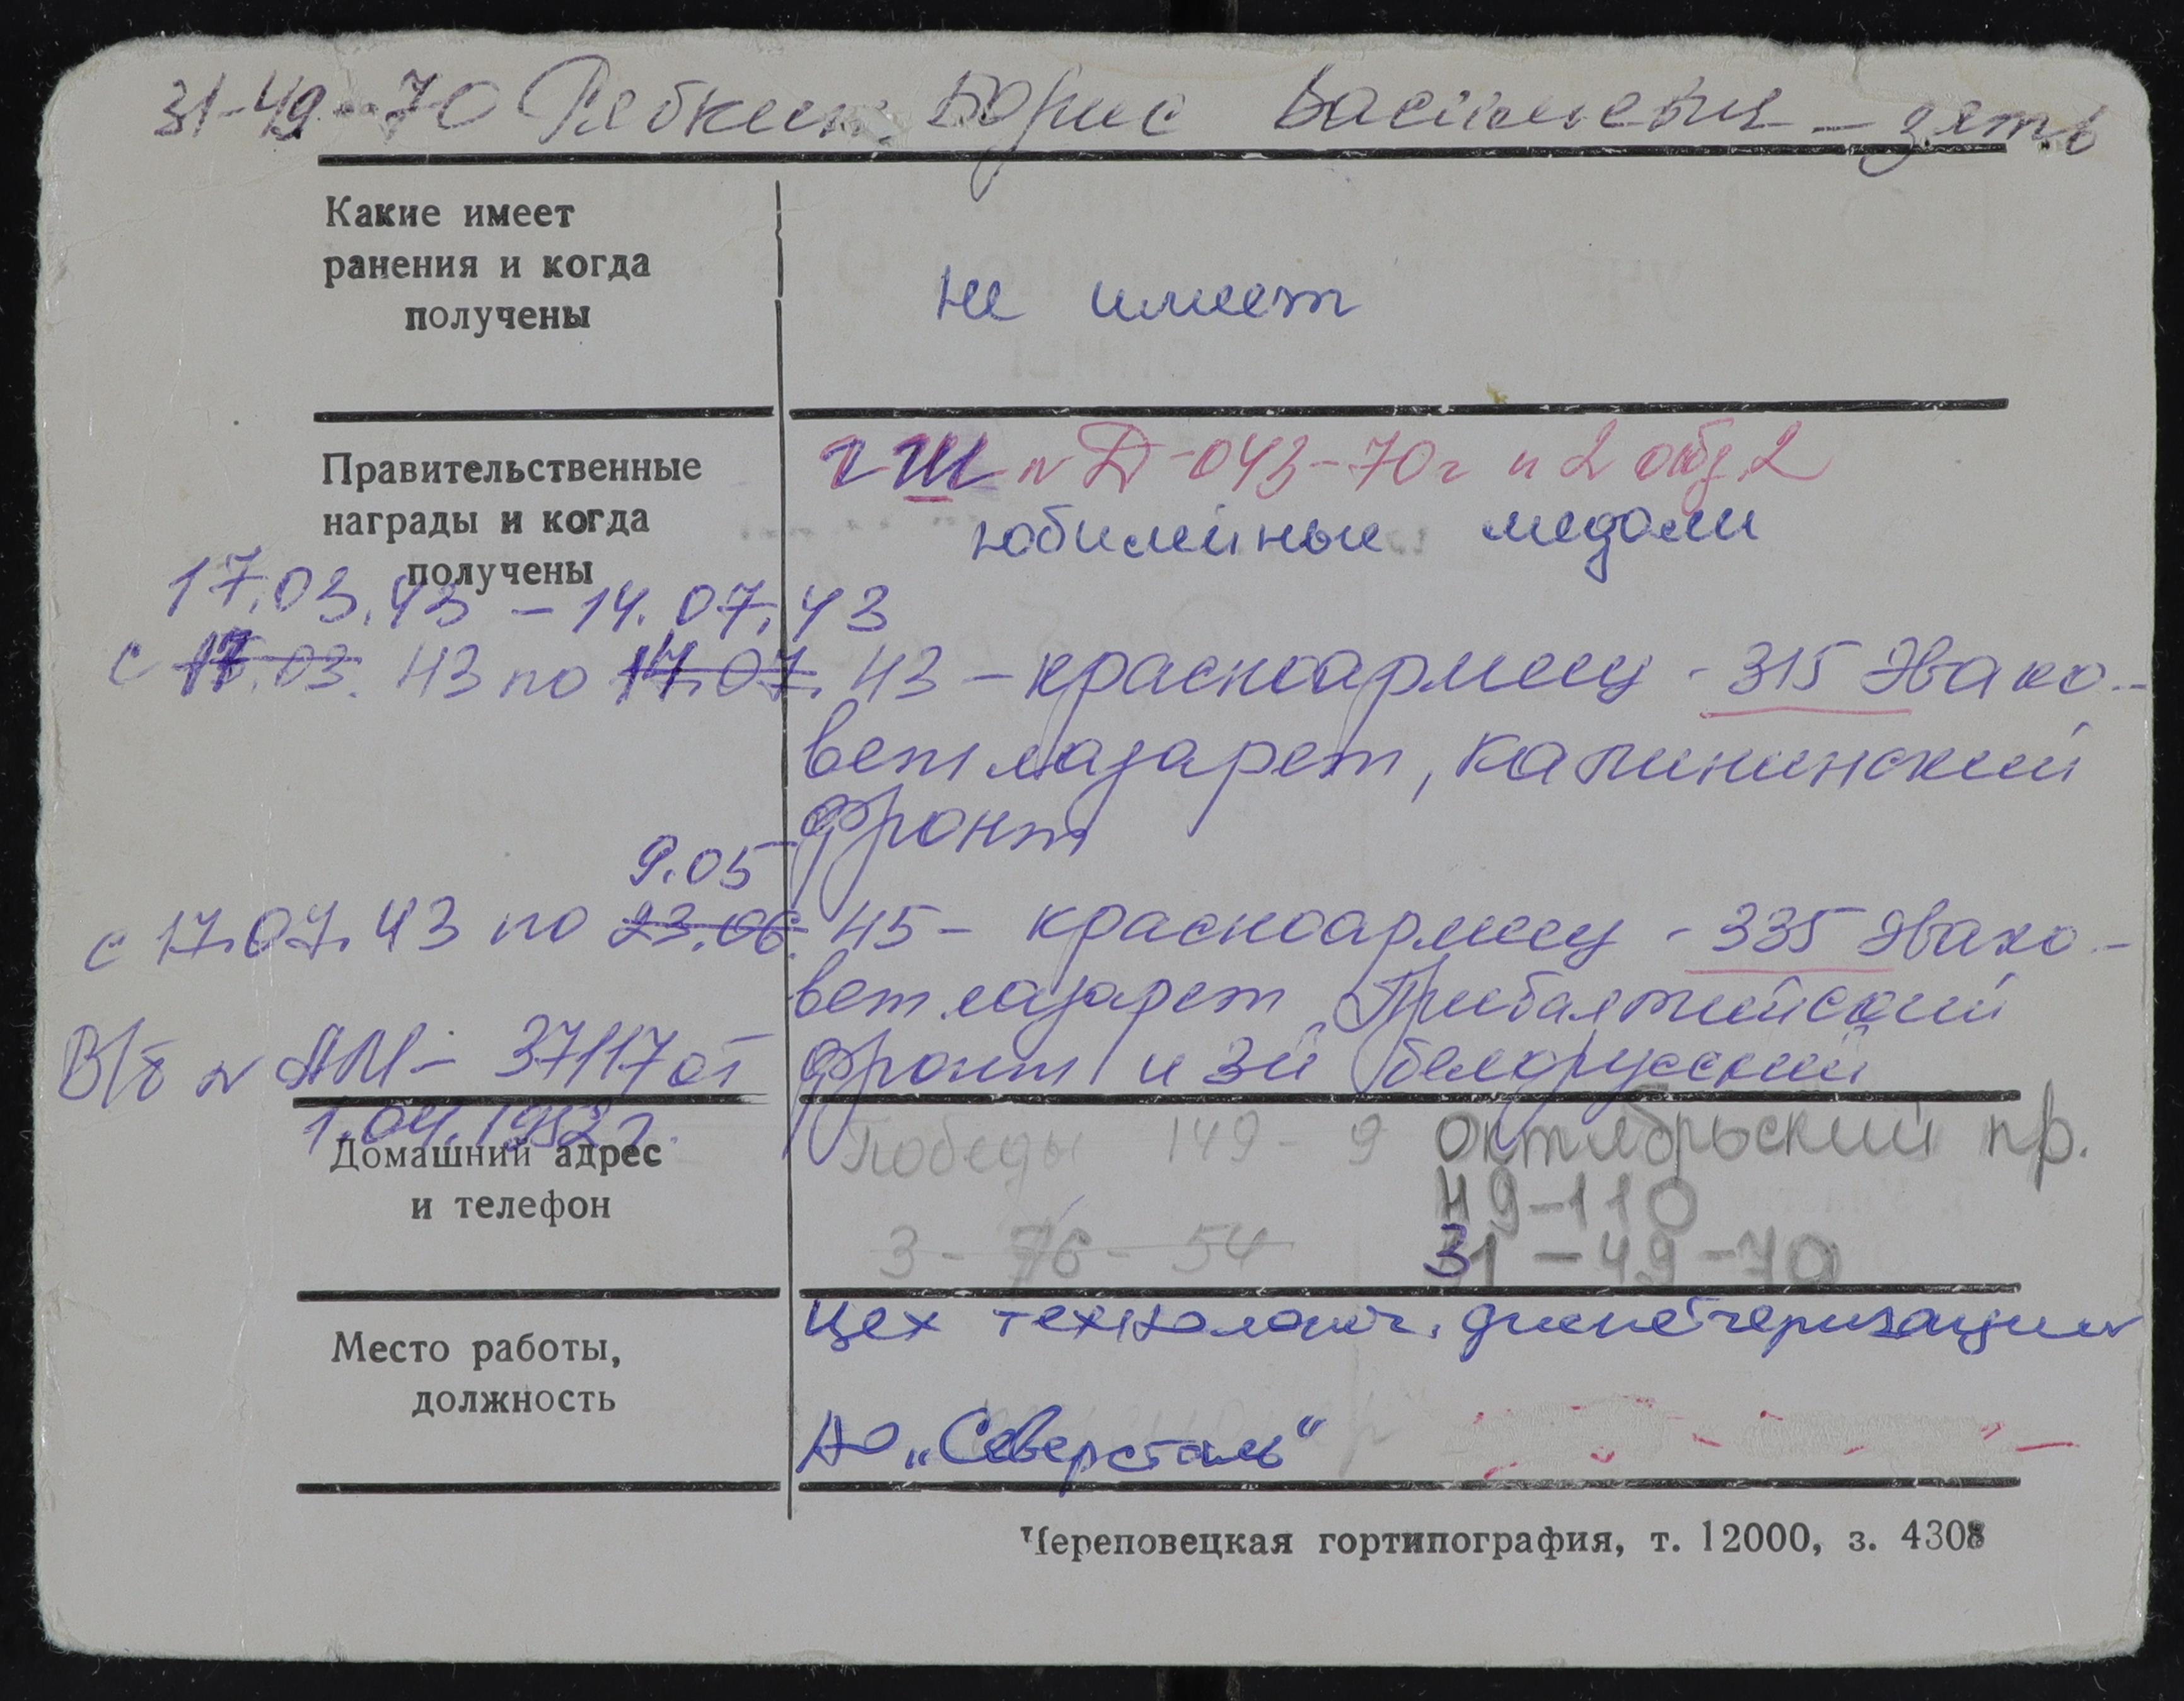 31-49-70 Рябкин Борис Васильевич - зять
Какие имеет
ранения и когда
получены
не имеет
Правительственные
награды и когда
получены
Д-043-70г и 2
юбилейные медали
17.03.43 - 14.07.43
с 17.03.43 по 14.07.43 - красноармеец - 315 Эвако-
ветлазарет, Калининский
фронт
9.05
с 17.07.43 по 23.06.45 - красноармеец - 335 Эвако-
ветлазарет, Прибалтийский
В/б N АМ- 37117 от
фронт и 3й Белорусский
1.04.1952г.
Домашний адрес
и телефон
Победы 149 - 9
Октябрьский пр.
49-110
3 - 76 - 54
31-49-70
Место работы,
должность
цех технологич. диспетчеризации
АО „Северсталь"
Череповецкая гортипография, т. 12000, з. 4308